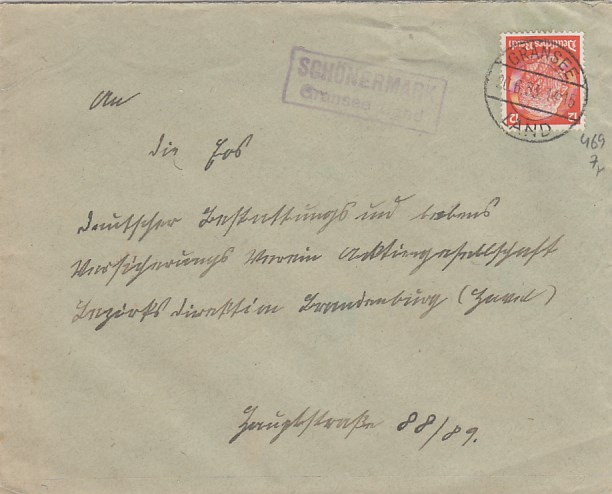 Deutsches Reich
GRANSEE
LAND
SCHÖNERMARK
Gransee Land
469
An
die Eos
Deutscher Bestattungs und Lebens
Versicherungs Verein Acktiengesellschaft
Bezirksdirektion Brandenburg (Havel)
Hauptstraße 88/89.